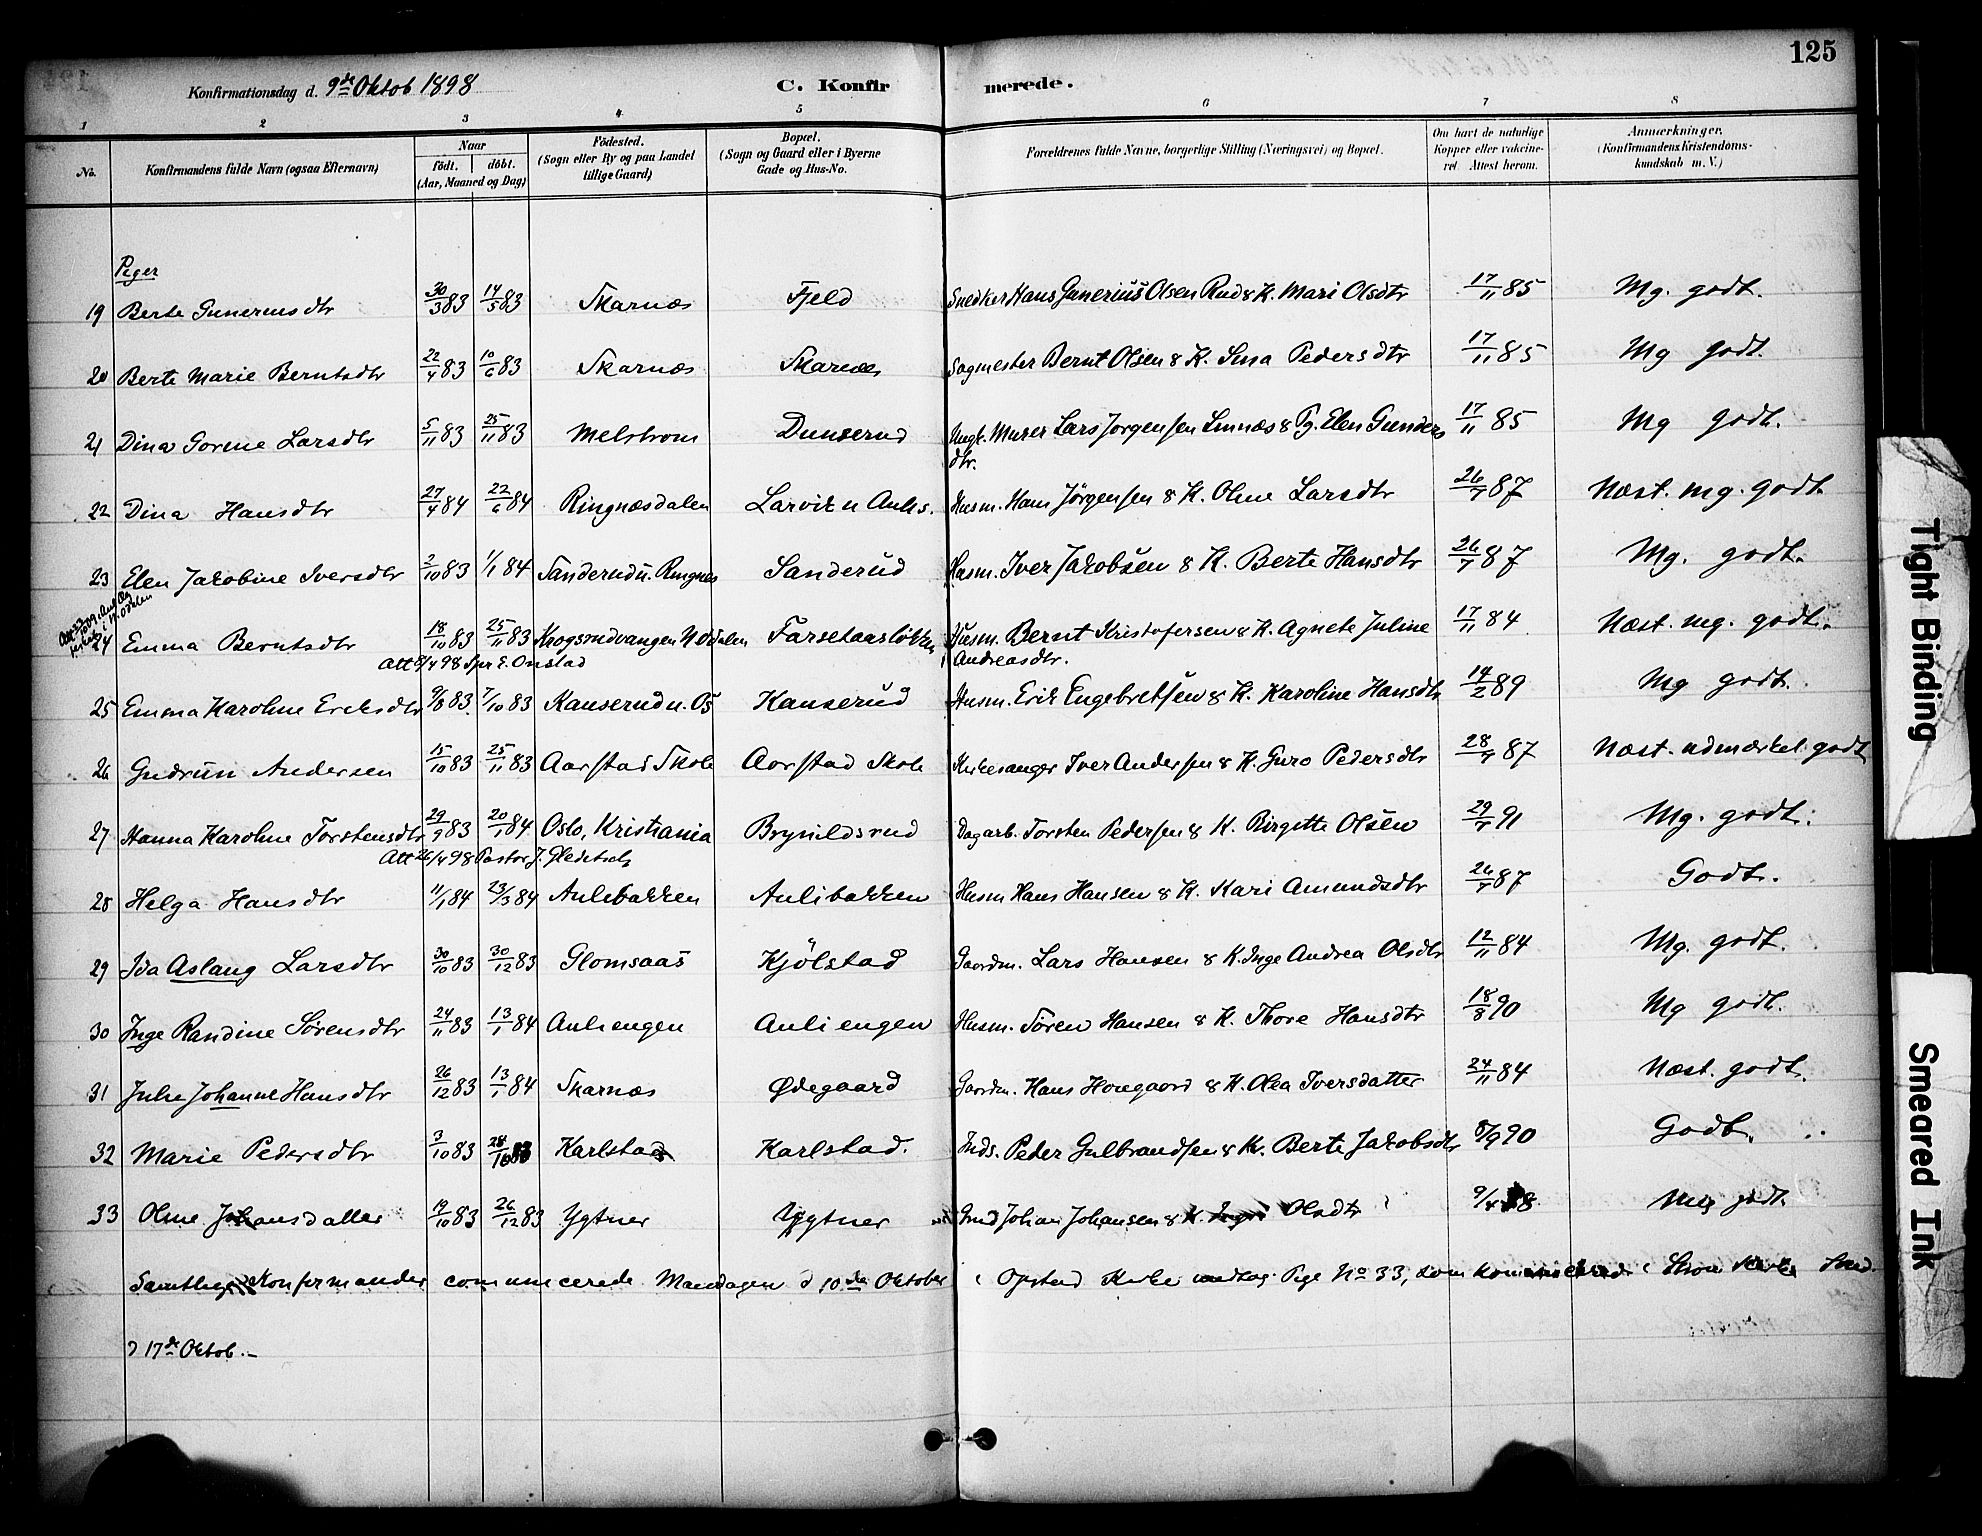 125
Konfirmationsdag d. 9de Oktob 1898 C. Konfir merede.
1 2 3 4 5 6 7 8
No. Konfirmandens fulde Navn (ogsaa Efternavn) Naar født. døbt. (Aar, Maaned og Dag) Födested. (Sogn eller By og paa Landet tillige Gaard) Bopæl. (Sogn og Gaard eller i Byerne Gade og Hus-No. Forældrenes fulde Navne, borgerlige Stilling (Næringsvei) og Bopæl. Om havt de naturlige Kopper eller vakcineret Attest herom. Anmærkninger. (Konfirmandens Kristendomskundskab m. V.)
Piger
19 Berte Gunneriusdtr 30/3 83 14/5 83 Skarnæs Fjeld Snedker Hans Gunerius Olsen Rud & K. Mari Olsdtr 17/11 85 Mg. godt.
20 Berte Marie Berntsdtr 22/4 83 10/6 83 Skarnæs Skarnæs Sagmester Bernt Olsen & K. Lina Pedersdtr 17/11 85 Mg godt.
21 Dina Gorine Larsdtr 5/11 83 25/11 83 Melstrom Dunserud Ungk. Murer Lars Jørgensen Linnæs & Pg. Elen Gunders
dtr. 17/11 85 Mg godt.
22 Dina Hansdtr 27/4 84 22/6 84 Ringnæsdalen Larvik u Aulis. Husm. Hans Jørgensen & K. Oline Larsdtr 26/7 87 Næst. mg. godt.
23 Elen Jakobine Iversdtr 2/10 83 1/1 84 Sanderud u. Ringnes Sanderud Husm. Iver Jakobsen & K. Berte Hansdtr 26/7 87 Mg. godt.
24 Emma Berntsdtr 18/10 83 25/11 83 Krogsrudvangen N Odalen Farsetaasløkken Husm. Bernt Kristofersen & K. Agnete Juline
Andreasdtr. 17/11 84 Næst. mg. godt.
Att 8/4 98 Spr E. Onstad
25 Emma Karoline Eriksdtr 9/8 83 7/10 83 Kanserud u. Os Kanserud Husm. Erik Engebretsen & K. Karoline Hansdtr 14/2 89 Mg godt.
26 Gudrun Andersen 15/10 83 25/11 83 Aarstad Skole Aarstad Skole Kirkesanger Iver Andersen & K. Guro Pedersdtr 28/7 87 Næst. udmærket godt
27 Hanna Karoline Torstensdtr 29/9 83 20/1 84 Oslo, Kristiania Brynildsrud Dagarb. Torsten Pedersen & K. Birgitte Olsen 29/7 91 Mg. godt.
Att 26/4 98 Pastor J. Gleditsch
28 Helga Hansdtr 11/1 84 23/3 84 Aulibakken Aulibakken Husm Hans Hansen & K. Kari Amundsdtr 26/7 87 Godt.
29 Ida Aslaug Larsdtr 30/10 83 30/12 83 Glomsaas Kjölstad Gaardm. Lars Hansen & K. Inge Andrea Olsdtr 12/11 84 Mg. godt.
30 Inge Randine Sørensdtr 24/11 83 13/1 84 Auliengen Auliengen Husm. Søren Hansen & K. Thore Hansdtr 18/8 90 Mg godt.
31 Julie Johanne Hansdtr 26/12 83 13/1 84 Skarnæs Ødegaard Gaardm. Hans Honegaard & K. Olea Iversdatter 24/11 84 Næst. godt.
32 Marie Pedersdtr 3/10 83 28/10 83 Karlstad Karlstad. Inds. Peder Gulbrandsen & K. Berte Jakobsdtr 8/9 90 Godt.
33 Oline Johansdatter 19/10 83 26/12 83 Ygtner Ygtner Johan Johansen & K. Olsdtr 9/4 88 Meg godt.
Samtlige Konfirmander comunicerede Mandagen d 10de Oktober i Opstad Kirke undtag. Pige No 33, som komunicerede i Strøm Kirke Sønd.
d 17de Oktob.
Tight Binding
Smeared Ink